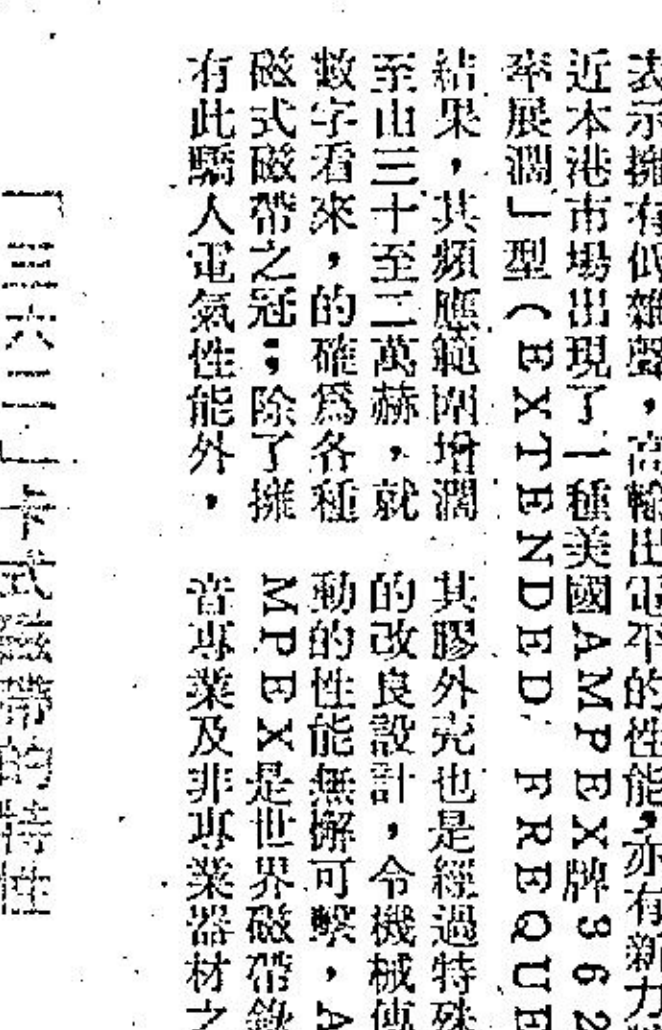 表示擁有低雜聲，高輸出電平的性能，亦有新力
近本港市場出現了一種美國AMPEX牌362
率展濶」型（EXTENDED FREQUE
結果，其頻應範圍增濶
至由三十至二萬赫，就
數字看來，的確爲各種
磁式磁帶之冠；除了擁
有此驕人電氣性能外，
其膠外壳也是經過特殊
的改良設計，令機械傳
動的性能無懈可擊，A
MPEX是世界磁帶錄
音專業及非專業器材之
「三六二」卡式磁帶的特性